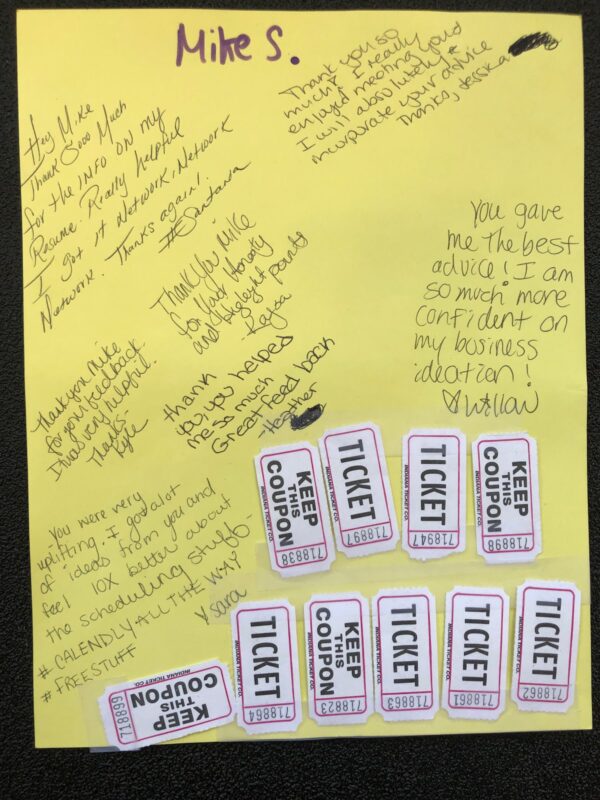 Mike S.
Thank you so
much! I really
enjoyed meeting you &
I will absolutely
incorporate your advice
Thanks, Jessica
Hey Mike
Thank Sooo Much
for the INFO on my
Resume. Really helpful
I got it Network, Network
Network. Thanks again!
#Santana
You gave
me the best
advice! I am
so much more
confident on
my business
ideation!
Willow
Thank you Mike
for your Honesty
and Highlight points
- Kaysa
Thank you Mike
for your feedback.
It was very helpful.
Thanks -
Kyle
thank
you, you helped
me so much
Great feed back
- Heather
You were very
uplifting. I got a lot
of ideas from you and
feel 10x better about
the scheduling stuff
# CALENDLY ALL THE WAY
# FREE STUFF
Sara
KEEP
THIS
COUPON
INDIANA TICKET CO.
718838
TICKET
INDIANA TICKET CO.
718897
TICKET
INDIANA TICKET CO.
718947
KEEP
THIS
COUPON
INDIANA TICKET CO.
718898
KEEP
THIS
COUPON
INDIANA TICKET CO.
718899
TICKET
INDIANA TICKET CO.
718864
KEEP
THIS
COUPON
INDIANA TICKET CO.
718823
TICKET
INDIANA TICKET CO.
718863
TICKET
INDIANA TICKET CO.
718861
TICKET
INDIANA TICKET CO.
718862